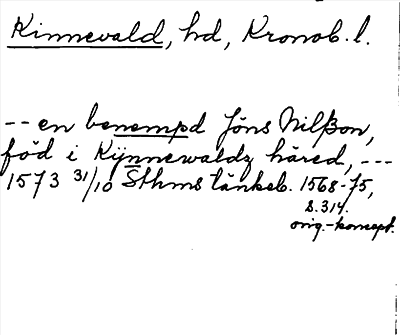 Kinnevald, hd, Kronob. l.
-- en benempd Jöns Nilßon,
föd i Kijnnewaldz häred, ---
1573 31/10 Sthms tänkeb. 1568-75,
s. 314.
orig.-koncept.